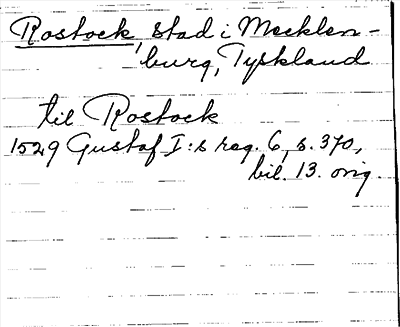 Rostock, stad i Mecklen-
burg, Tyskland
til Rostock
1529 Gustaf I:s reg. 6, s. 370,
bil. 13. orig.